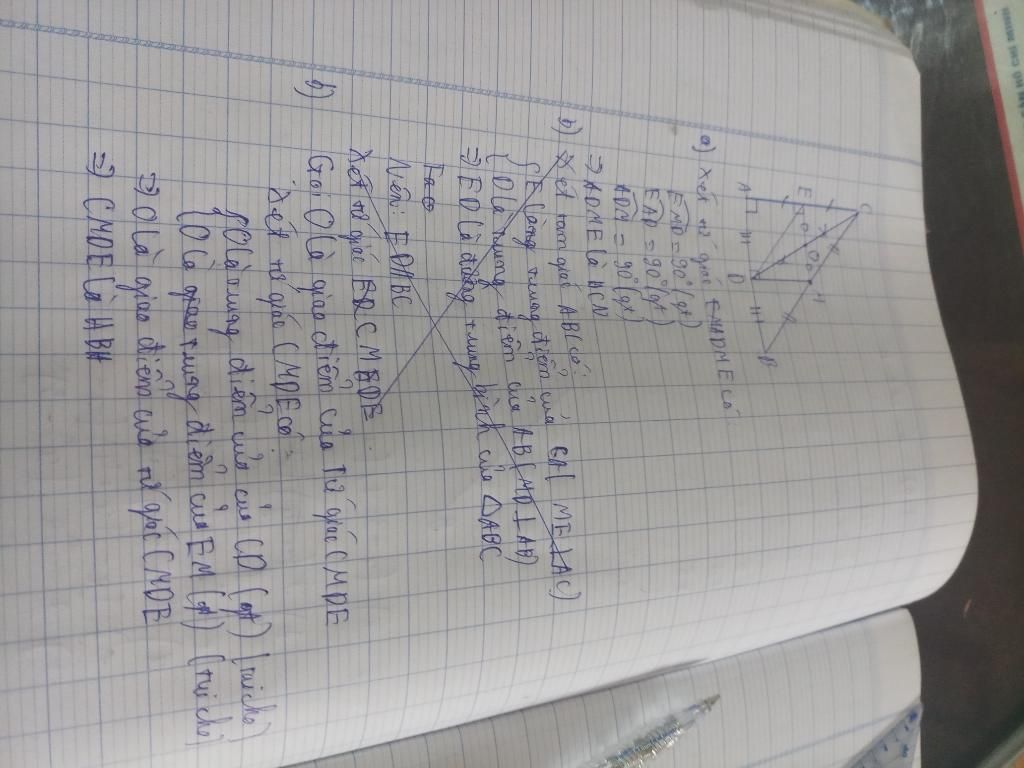 C
E
O
M
A
D
B
a) Xét tứ giác ADME có
EMD = 90° (gt)
EAD = 90° (gt)
ADM = 90° (gt)
⇒ ADME là HCN
b) Xét tam giác ABC có:
{ E là trung điểm của CA ( ME ⊥ AC )
{ D là trung điểm của AB ( MD ⊥ AB )
⇒ ED là đường trung bình của △ABC
Nên: ED
Xét tứ giác CMDE
b)
Gọi O là giao điểm của Tứ giác CMDE
Xét tứ giác CMDE có
{ O là trung điểm của CD (gt) (
{ O là trung điểm của EM (gt) (
⇒ O là giao điểm của tứ giác CMDE
⇒ CMDE là HBH